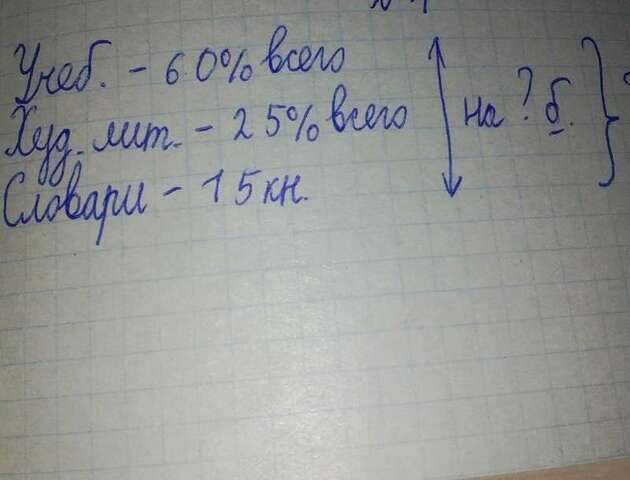 Учеб. - 60% всего
Худ. лит. - 25% всего
Словари - 15 кн.
на ? б.